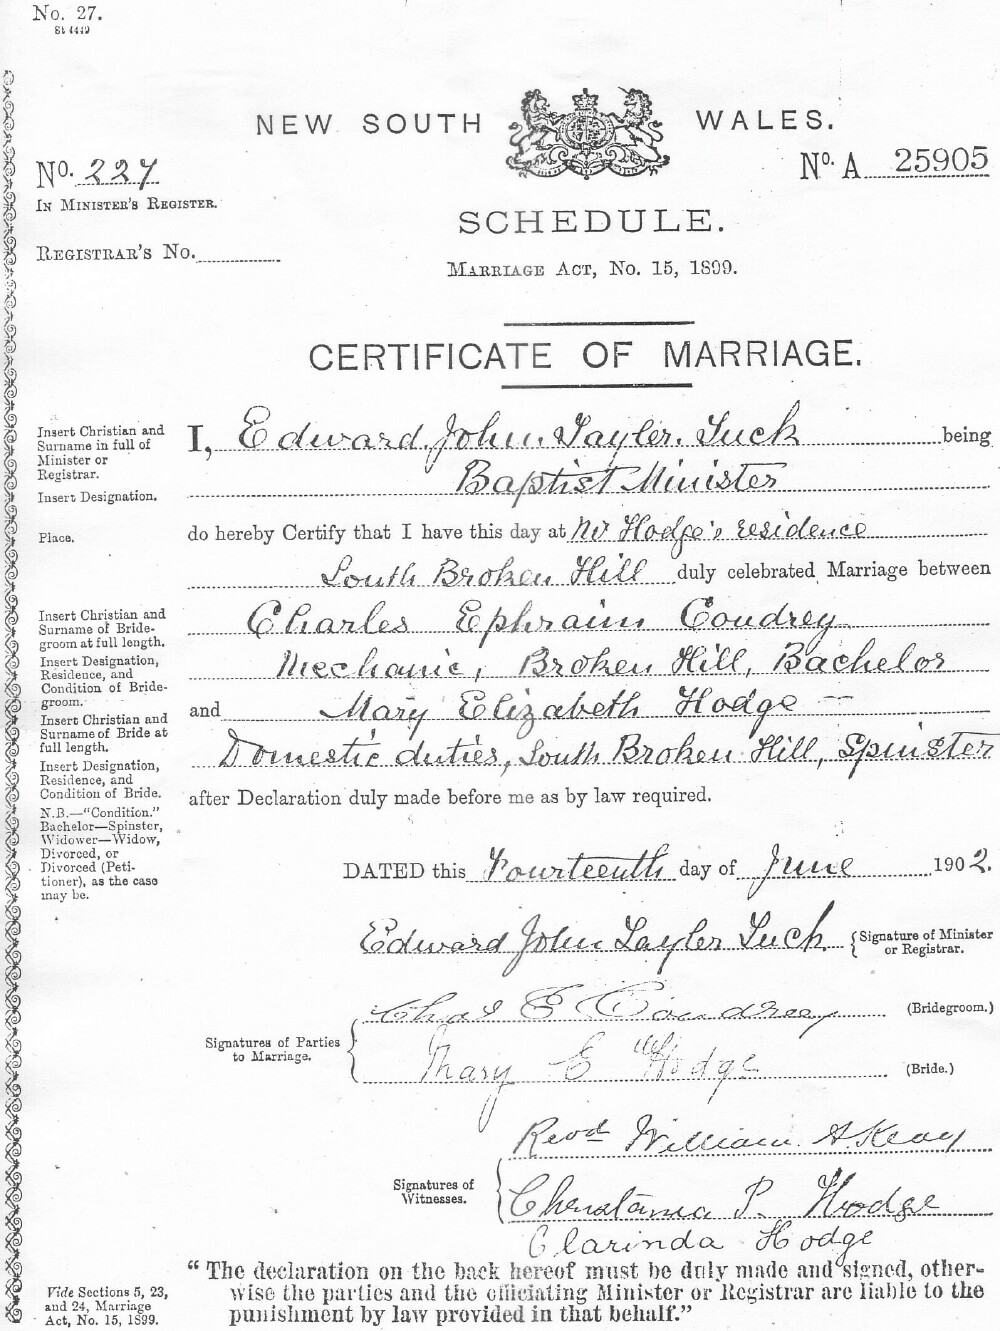 No. 27.
St 4449
NEW SOUTH WALES.
No. 227
IN MINISTER'S REGISTER.
No. A 25905
SCHEDULE.
REGISTRAR'S No.
MARRIAGE ACT, No. 15, 1899.
CERTIFICATE OF MARRIAGE.
Insert Christian and
Surname in full of
Minister or
Registrar.
I, Edward John Tayler Tuck being
Insert Designation.
Baptist Minister
Place.
do hereby Certify that I have this day at Mr Hodge's residence
South Broken Hill duly celebrated Marriage between
Insert Christian and
Surname of Bride-
groom at full length.
Charles Ephraim Coudrey
Insert Designation,
Residence, and
Condition of Bride-
groom.
Mechanic, Broken Hill, Bachelor
Insert Christian and
Surname of Bride at
full length.
and Mary Elizabeth Hodge —
Insert Designation,
Residence, and
Condition of Bride.
Domestic duties, South Broken Hill, Spinster
after Declaration duly made before me as by law required.
N.B.—"Condition."
Bachelor—Spinster,
Widower—Widow,
Divorced, or
Divorced (Peti-
tioner), as the case
may be.
DATED this Fourteenth day of June 1902.
Edward John Tayler Tuck
Signature of Minister
or Registrar.
Signatures of Parties
to Marriage.
Chas E Coudrey (Bridegroom.)
Mary E Hodge (Bride.)
Signatures of
Witnesses.
Revd William A Keay
P. Hodge
Clarinda Hodge
Vide Sections 5, 23,
and 24, Marriage
Act, No. 15, 1899.
"The declaration on the back hereof must be duly made and signed, other-
wise the parties and the officiating Minister or Registrar are liable to the
punishment by law provided in that behalf."